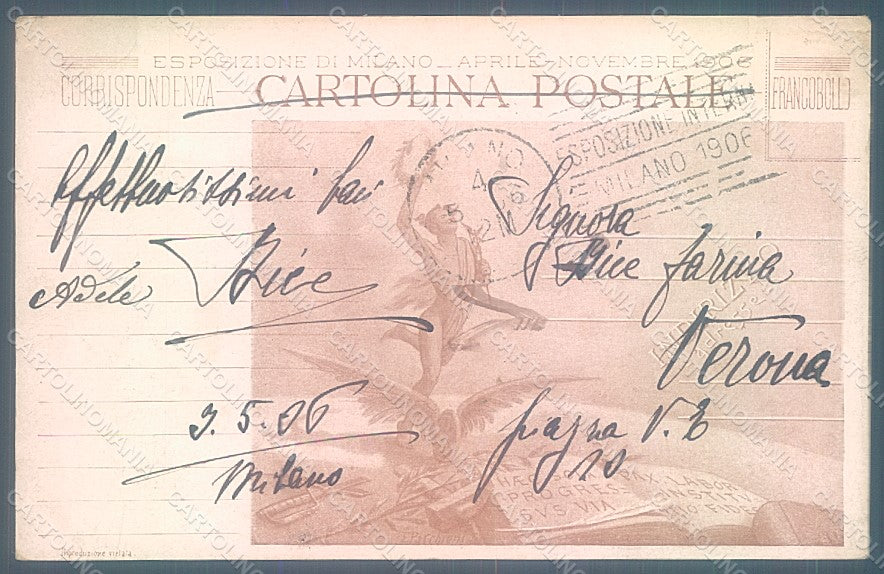 ESPOSIZIONE DI MILANO - APRILE-NOVEMBRE 1906
CORRISPONDENZA
CARTOLINA POSTALE
FRANCOBOLLO
MILANO
4
5
ESPOSIZIONE INTERN
MILANO 1906
Affettuosissimi baci
Bice
Adele
3.5.06
Milano
Signora
Bice Farina
Verona
V. E
10
HÆC PAX LA
PROGRESS INSTITV
SVS VIA FIDES
Riproduzione vietata
CARTOLINOMANIA